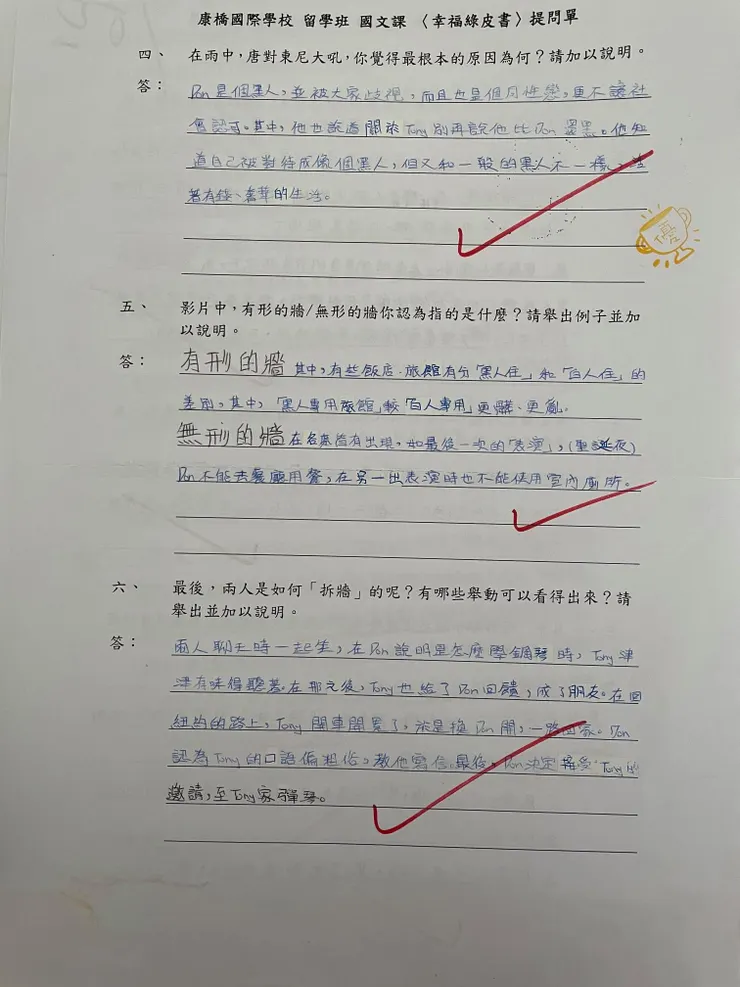 康橋國際學校 留學班 國文課 〈幸福綠皮書〉提問單
四、 在雨中,唐對東尼大吼,你覺得最根本的原因為何?請加以說明。
答: Don 是個黑人,並被大家歧視,而且也是個同性戀,更不讓社
會認可。其中,他也說過關於 Tony 別再說他比 Don 還黑。他知
道自己被對待成像個黑人,但又和一般的黑人不一樣,活
著有錢、奢華的生活。
優
五、 影片中,有形的牆/無形的牆你認為指的是什麼?請舉出例子並加
以說明。
答: 有形的牆 其中,有些飯店、旅館有分「黑人住」和「白人住」的
差別,其中,「黑人專用旅館」較「白人專用」更髒、更亂。
無形的牆 在各處皆有出現,如最後一次的「表演」,(聖誕夜)
Don 不能去餐廳用餐,在另一出表演時也不能使用室內廁所。
六、 最後,兩人是如何「拆牆」的呢?有哪些舉動可以看得出來?請
舉出並加以說明。
答: 兩人聊天時一起笑,在 Don 說明是怎麼學鋼琴時,Tony 津
津有味得聽著。在那之後,Tony 也給了 Don 回饋,成了朋友。在回
紐約的路上,Tony 開車開累了,於是換 Don 開,一路回家。Don
認為 Tony 的口語偏粗俗,教他寫信。最後,Don 決定接受 Tony 的
邀請,至 Tony 家彈琴。